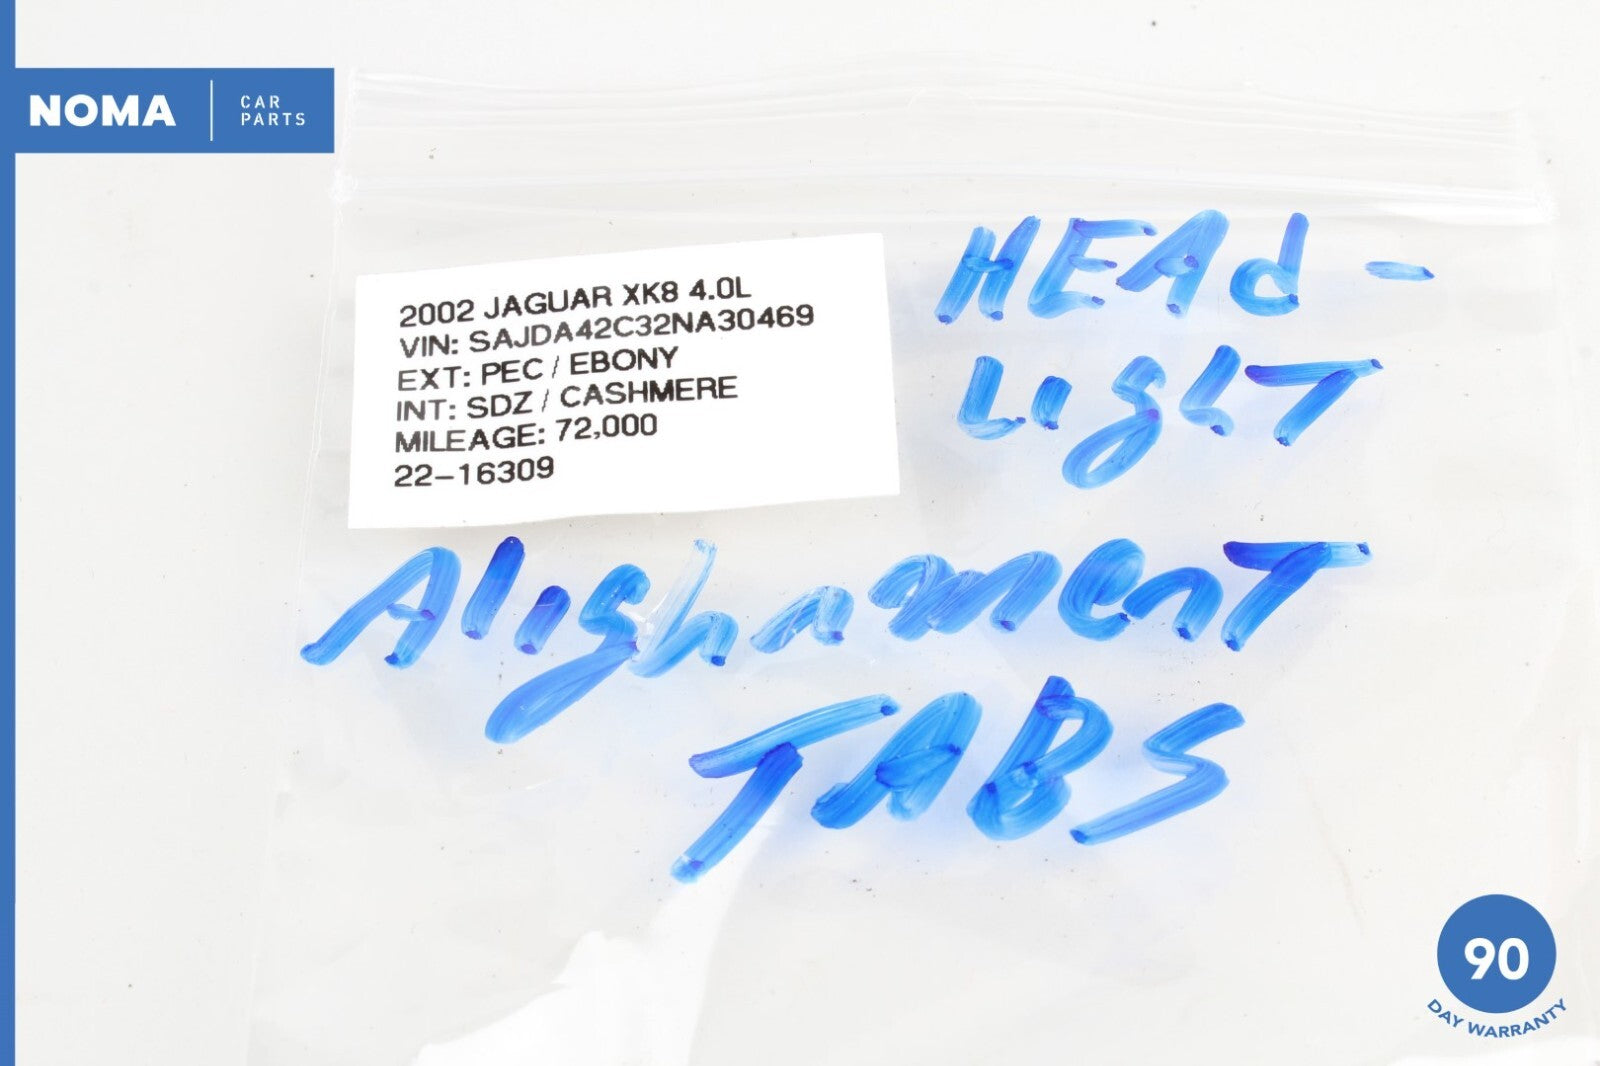 NOMA
CAR
PARTS
2002 JAGUAR XK8 4.0L
VIN: SAJDA42C32NA30469
EXT: PEC / EBONY
INT: SDZ / CASHMERE
MILEAGE: 72,000
22-16309
HEAd-
LigLT
Alighnment
TABS
90
DAY WARRANTY